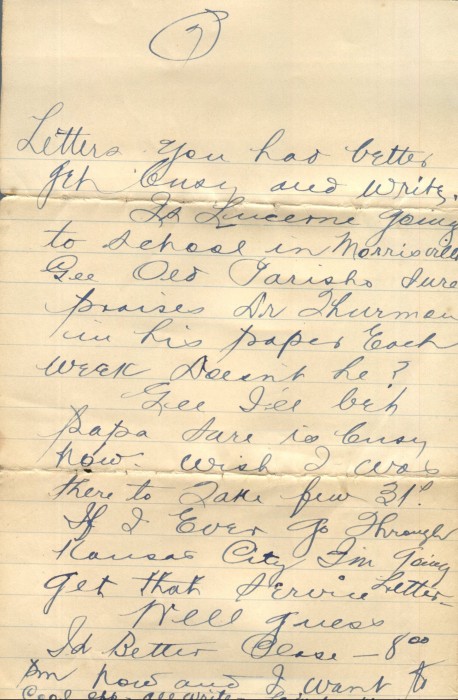 7
Letters you had better
get busy and write.
Is Lucerne going
to school in Morrisville
Gee Old Parish sure
praises Dr Thurman
in his paper Each
week Doesn't he?
Gee I'll bet
papa sure is busy
now. Wish I was
there to Take few 31s.
If I Ever go Through
Kansas City I'm going
get that Service Letter-
Well guess
I'd Better Close - 8 00
Pm now and I want to
all write -